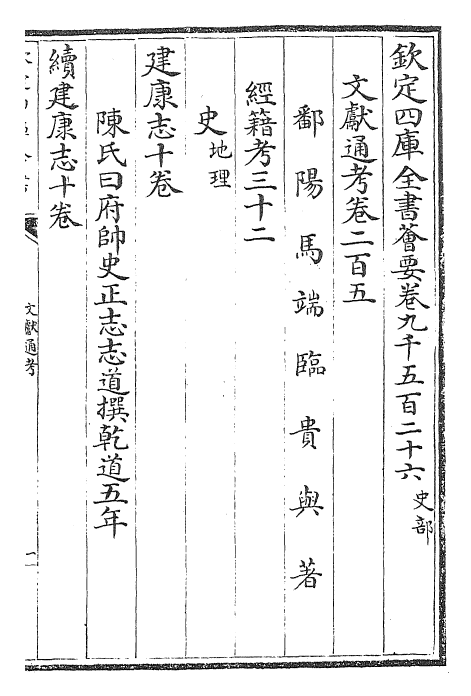 欽定四庫全書薈要卷九千五百二十六 史部
文獻通考卷二百五
鄱陽馬端臨貴與著
經籍考三十二
史 地理
建康志十卷
陳氏曰府帥史正志志道撰乾道五年
續建康志十卷
文獻通考
一